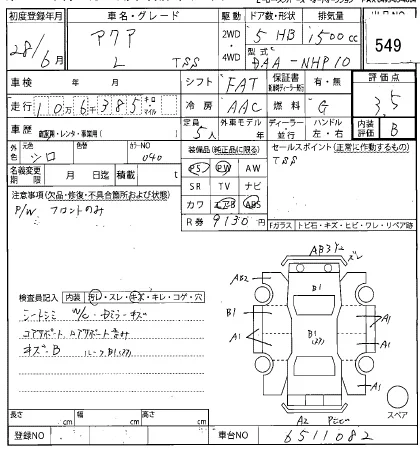 初度登録年月 車名・グレード 駆動 ドア数・形状 排気量
28/6月 アクア L TSS 2WD・4WD 5 HB 1500cc
型式 DAA-NHP10
549
車検 年 月 シフト FAT 保証書 有・無 評価点 3.5
走行 10万6千385キロ・マイル 冷房 AAC 燃料 G
車歴 自家用・レンタ・事業用( ) 定員 5人 外車モデル年 ディーラー・並行 ハンドル 左・右 内装評価 B
外色 元色 シロ 色替 カラーNO 040 装備品(純正品に限る) セールスポイント(正常に作動するもの)
TSS
名義変更期限 月 日迄 積載 t
PS PW AW
SR TV ナビ
カワ エアB ABS
R券 9130円
注意事項(欠品・修復・不具合箇所および状態)
P/W フロントのみ
Fガラス トビ石・キズ・ヒビ・ワレ・リペア跡
検査員記入 内装 汚レ・スレ・キズ・キレ・コゲ・穴
シートシミ
コアサポート
キズ・B ルーフB1
AB3
AB2
B1
B1
A1
A1
B1
A1
A1
A2
スペア
長さ .cm 幅 .cm 高さ .cm
登録NO 車台NO 6511082